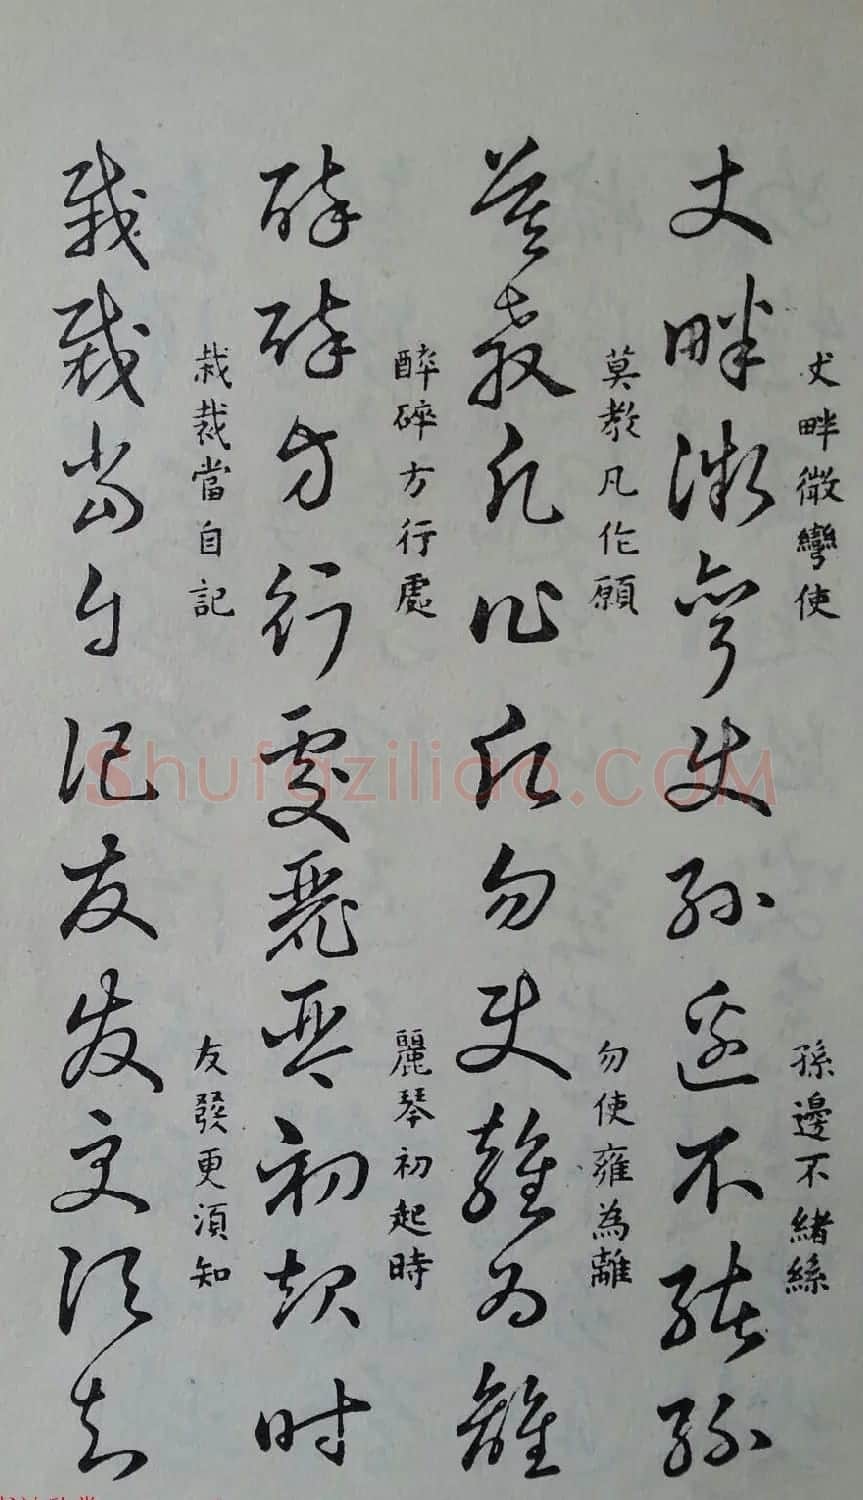 丈畔微彎使
孫邊不緒絲
丈畔微彎使孫邊不緒絲
莫教凡作願
勿使雍為離
莫教凡作願勿使雍為離
醉碎方行處
麗琴初起時
醉碎方行處麗琴初起時
栽裁當自記
友發更須知
栽裁當自記友發更須知
Shufaziliao.COM